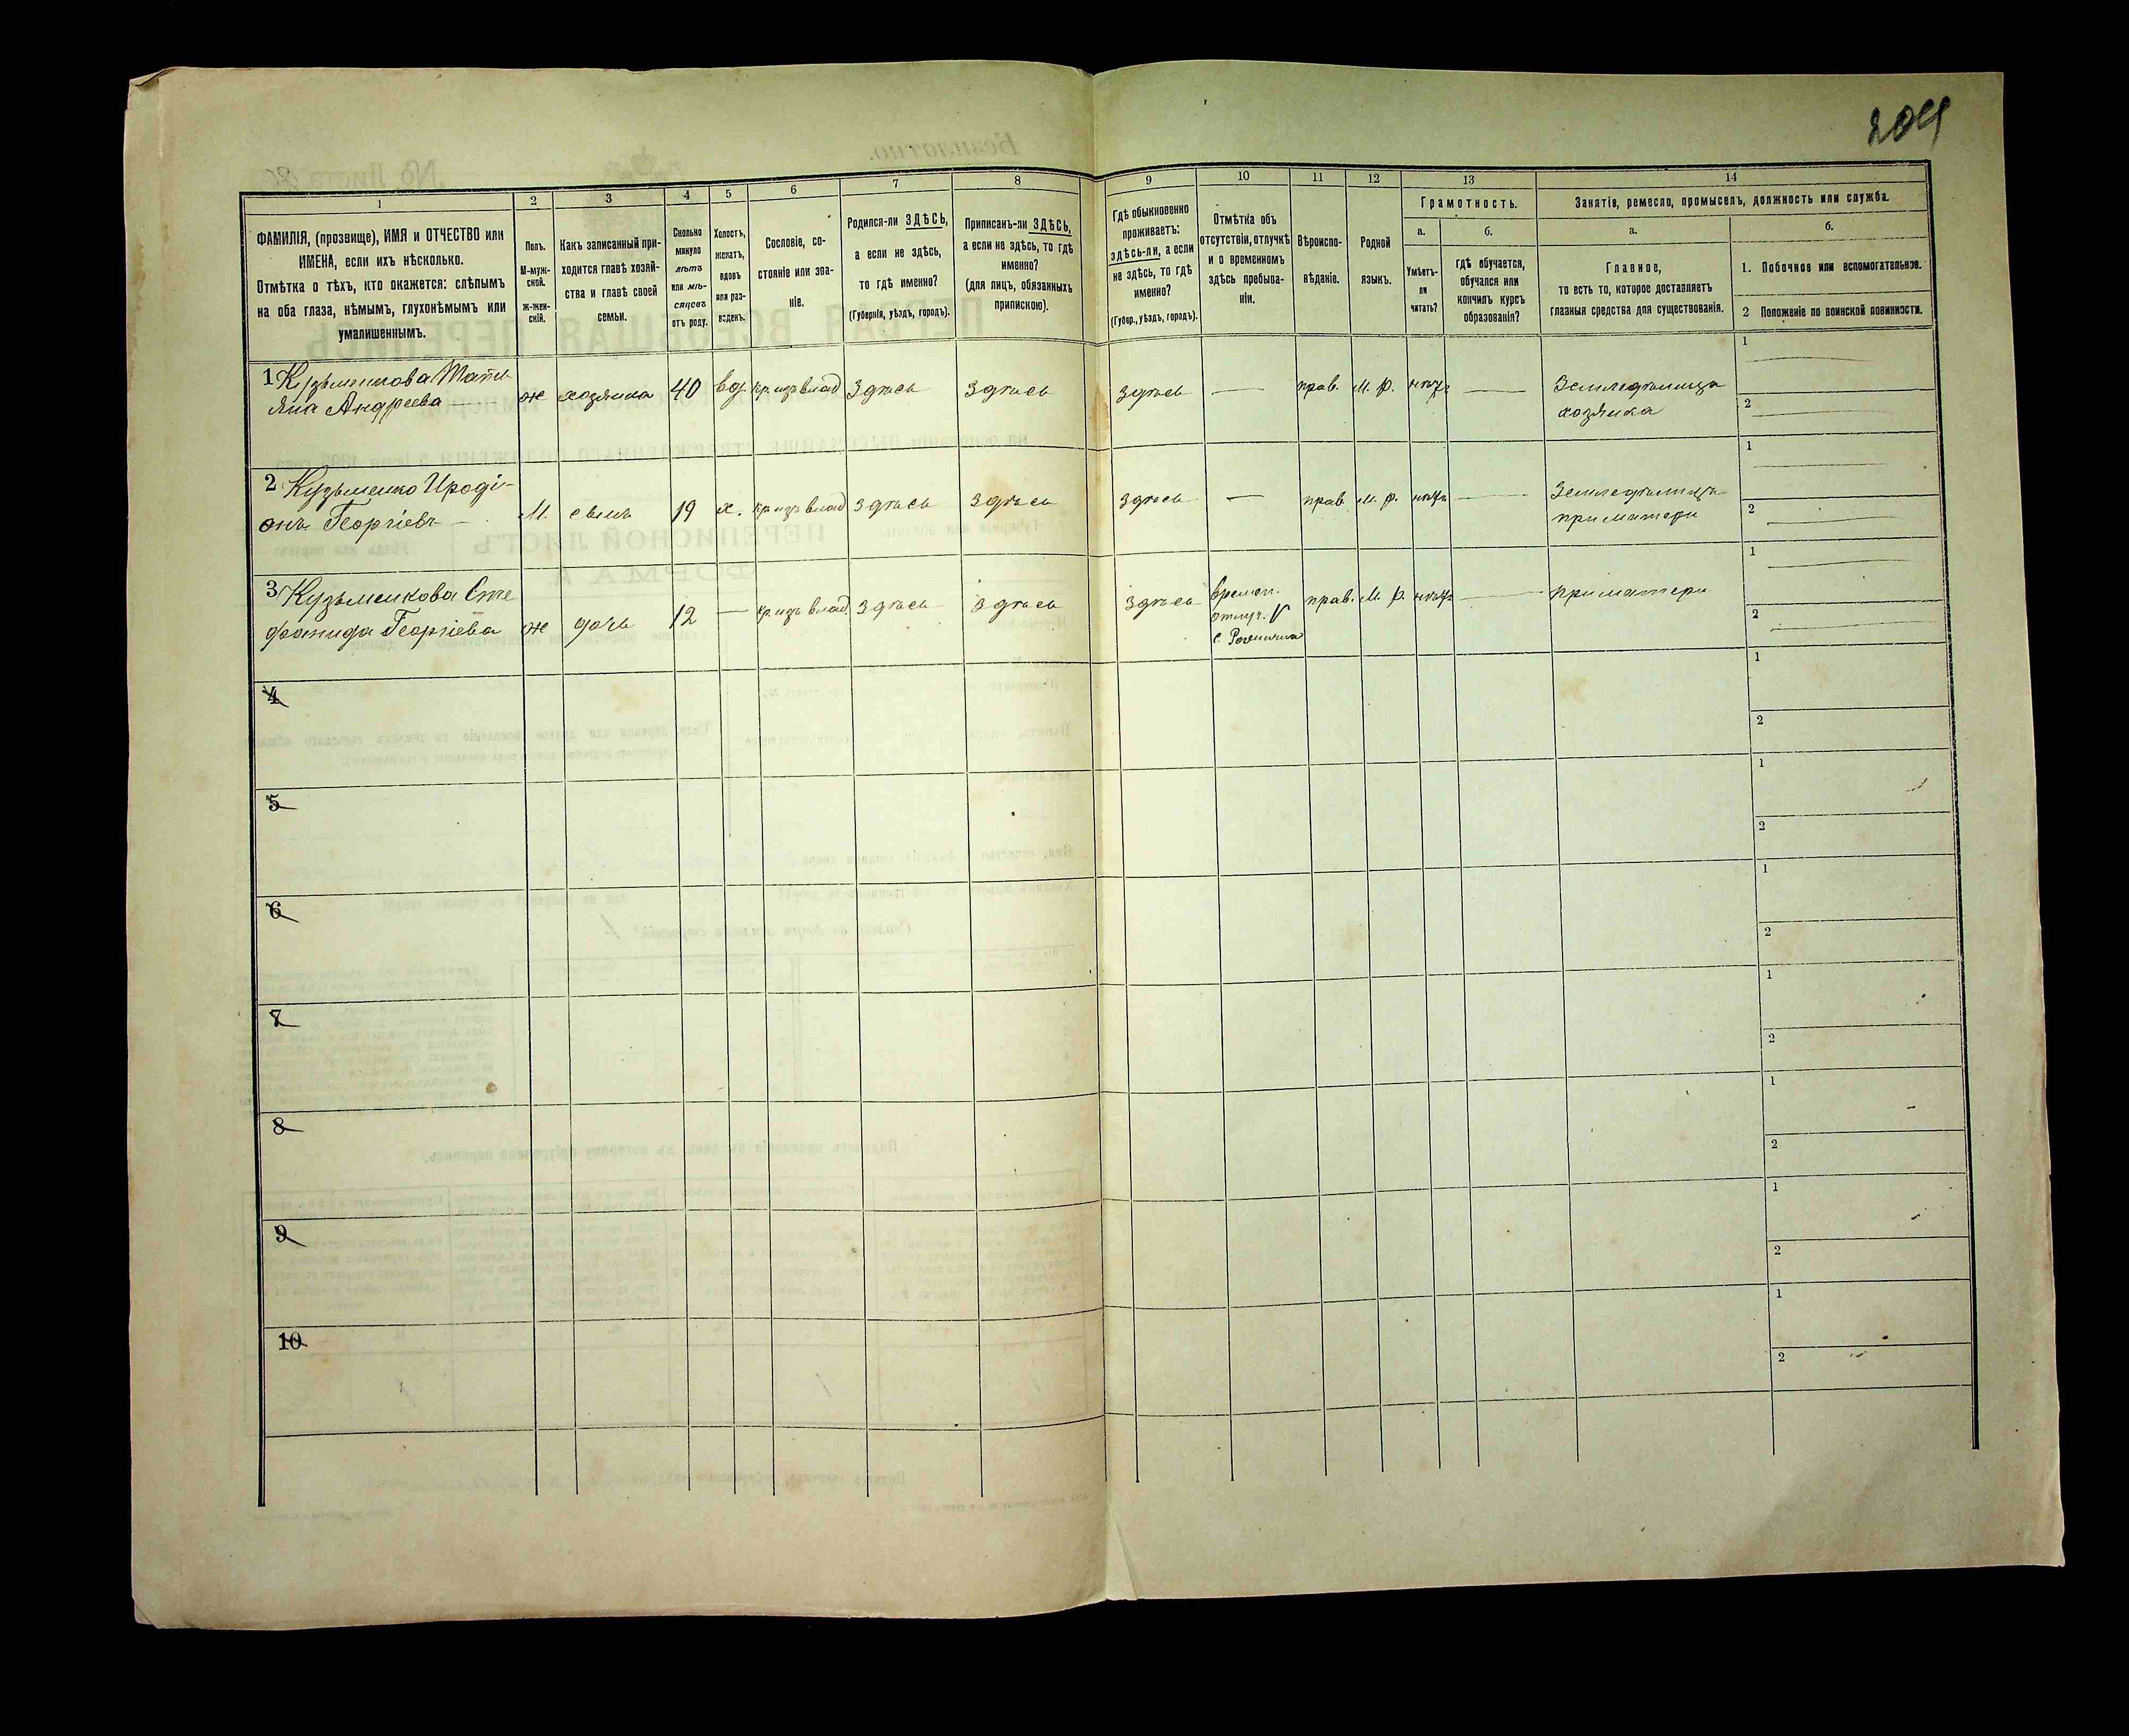 204
1
2
3
4
5
6
7
8
9
10
11
12
13
14
ФАМИЛІЯ, (прозвище), ИМЯ и ОТЧЕСТВО или
ИМЕНА, если ихъ нѣсколько.
Отмѣтка о тѣхъ, кто окажется: слѣпымъ
на оба глаза, нѣмымъ, глухонѣмымъ или
умалишеннымъ.
Полъ.
М-муж-
ской.
Ж-жен-
скій.
Какъ записанный при-
ходится главѣ хозяй-
ства и главѣ своей
семьи.
Сколько
минуло
лѣтъ
или мѣ-
сяцевъ
отъ роду.
Холостъ,
женатъ,
вдовъ
или раз-
веденъ.
Сословіе, со-
стояніе или зва-
ніе.
Родился-ли ЗДѢСЬ,
а если не здѣсь,
то гдѣ именно?
(Губернія, уѣздъ, городъ).
Приписанъ-ли ЗДѢСЬ,
а если не здѣсь, то гдѣ
именно?
(для лицъ, обязанныхъ
припискою).
Гдѣ обыкновенно
проживаетъ:
здѣсь-ли, а если
не здѣсь, то гдѣ
именно?
(Губер., уѣздъ, городъ).
Отмѣтка объ
отсутствіи, отлучкѣ
и о временномъ
здѣсь пребыва-
ніи.
Вѣроиспо-
вѣданіе.
Родной
языкъ.
Грамотность.
а.
Умѣетъ-
ли
читать?
б.
гдѣ обучается,
обучался или
кончилъ курсъ
образованія?
Занятіе, ремесло, промыселъ, должность или служба.
а.
Главное,
то есть то, которое доставляетъ
главныя средства для существованія.
б.
1. Побочное или вспомогательное.
2 Положеніе по воинской повинности.
1 Кузьменкова Тать
яна Андреева ж хозяика 40 вд. кр. изъ влад здѣсь здѣсь здѣсь — прав. М. р. нѣтъ — Земледѣлица
хозяика
1
2
2 Кузьменко Ироді-
онъ Георгіевъ М. сынъ 19 х. кр. изъ влад здѣсь здѣсь здѣсь — прав М. р. нѣтъ — Земледѣлица
при матери
1
2
3 Кузьменкова Сте
фанида Георгіева ж дочь 12 — кр. изъ влад. здѣсь здѣсь здѣсь времен.
отлуч. V
с. прав. М. р. нѣтъ — при матери
1
2
4
1
2
5
1
2
6
1
2
7
1
2
8
1
2
9
1
2
10
1
2